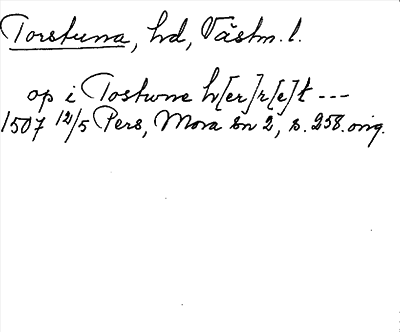 Torstuna, hd, Västm. l.
op i Tostwne h[er]r[e]t ---
1507 12/5 Pers, Mora sn 2, s. 258. orig.